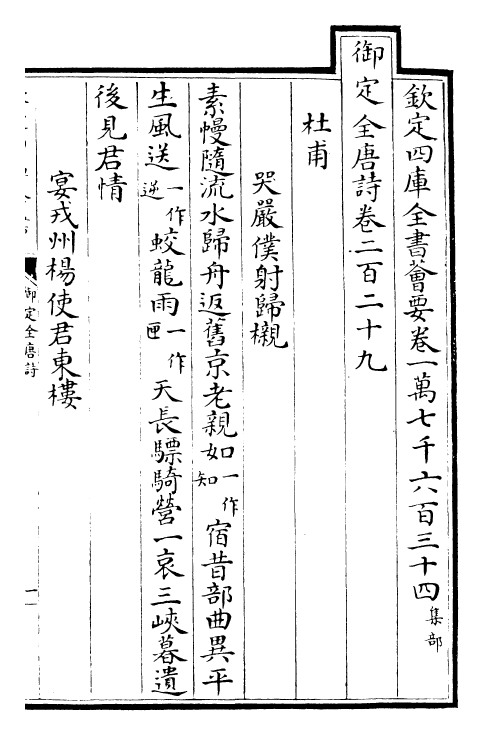 欽定四庫全書薈要卷一萬七千六百三十四集部
御定全唐詩卷二百二十九
杜甫
哭嚴僕射歸櫬
素幔隨流水歸舟返舊京老親如一作知宿昔部曲異平
生風送一作逆蛟龍雨一作匣天長驃騎營一哀三峽暮遺
後見君情
宴戎州楊使君東樓
御定全唐詩
一